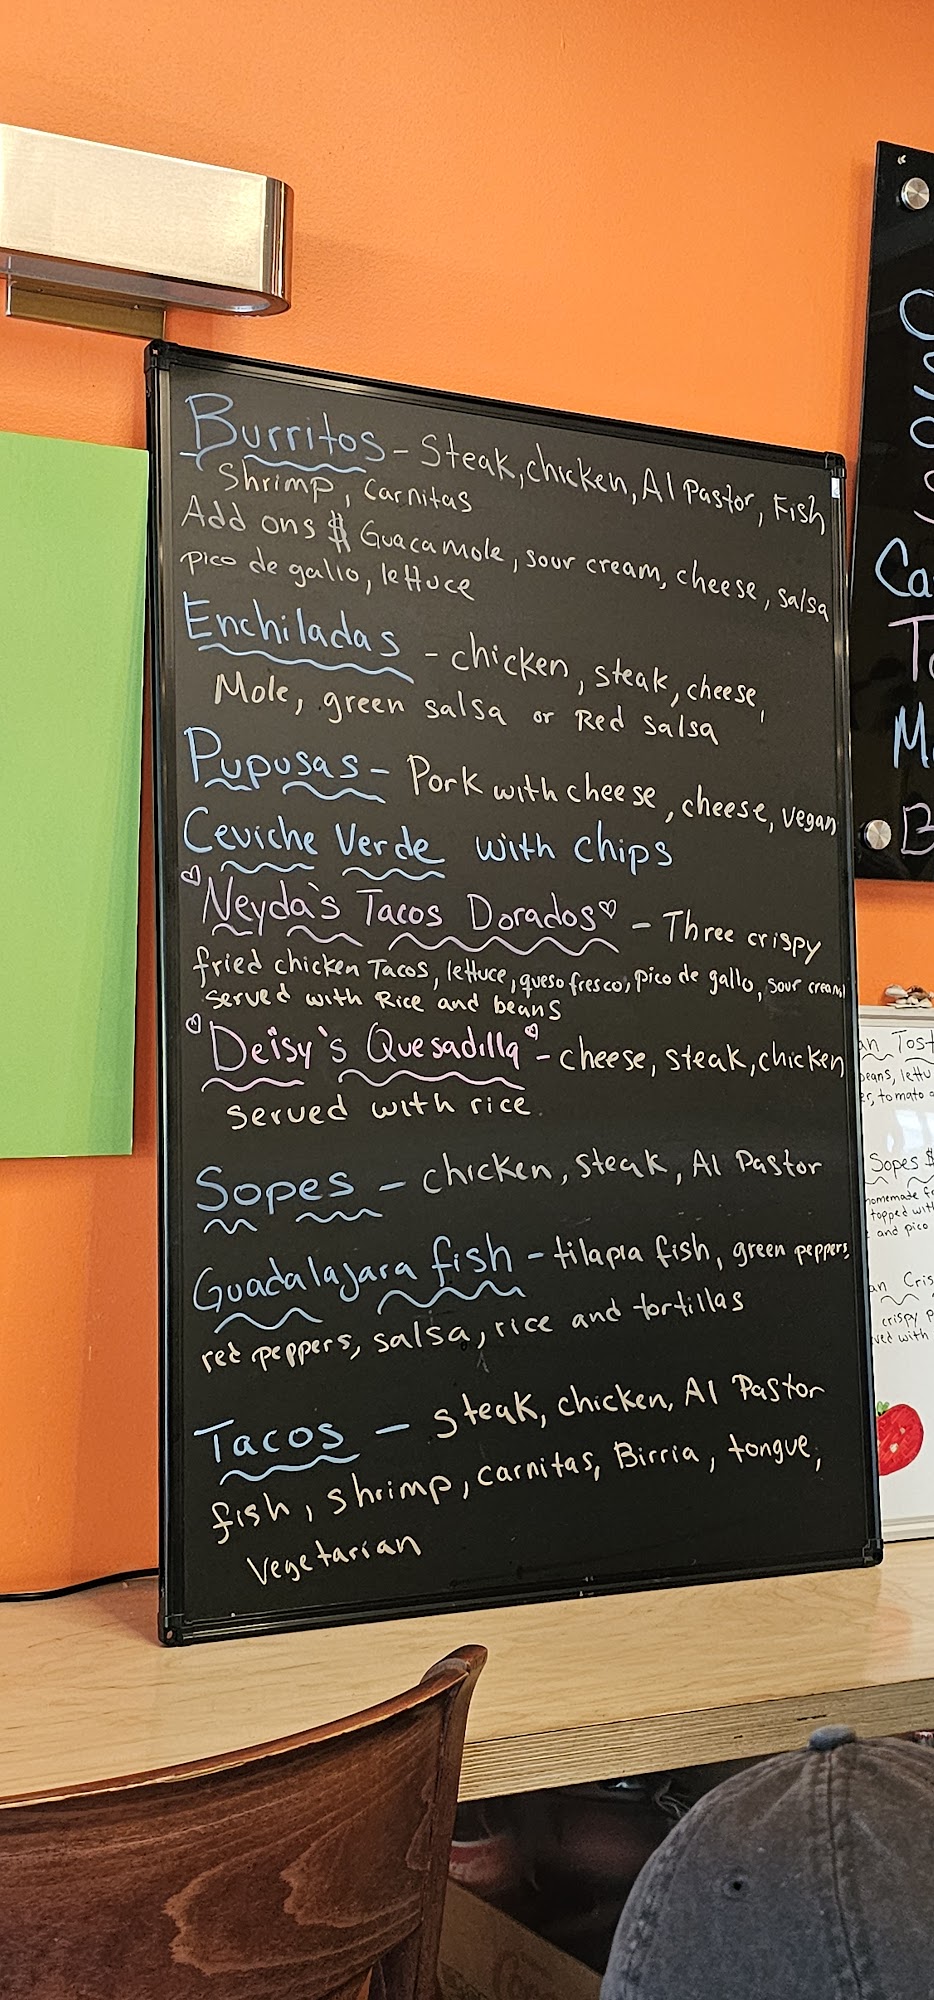 Burritos - Steak, chicken, Al Pastor, Fish
Shrimp, Carnitas
Add ons $ Guacamole, sour cream, cheese, salsa
pico de gallo, lettuce
Enchiladas - chicken, steak, cheese,
Mole, green salsa or Red salsa
Pupusas - Pork with cheese, cheese, vegan
Ceviche Verde with chips
Neyda's Tacos Dorados - Three crispy
fried chicken Tacos, lettuce, queso fresco, pico de gallo, sour cream
served with Rice and beans
Deisy's Quesadilla - cheese, steak, chicken
served with rice
Sopes - chicken, steak, Al Pastor
Guadalajara fish - tilapia fish, green peppers,
red peppers, salsa, rice and tortillas
Tacos - steak, chicken, Al Pastor
fish, shrimp, carnitas, Birria, tongue,
Vegetarian
Ca
To
M
B
an Tost
beans, lettu
er, tomato
Sopes $
homemade
topped with
and pico
an Cris
crispy p
ved with